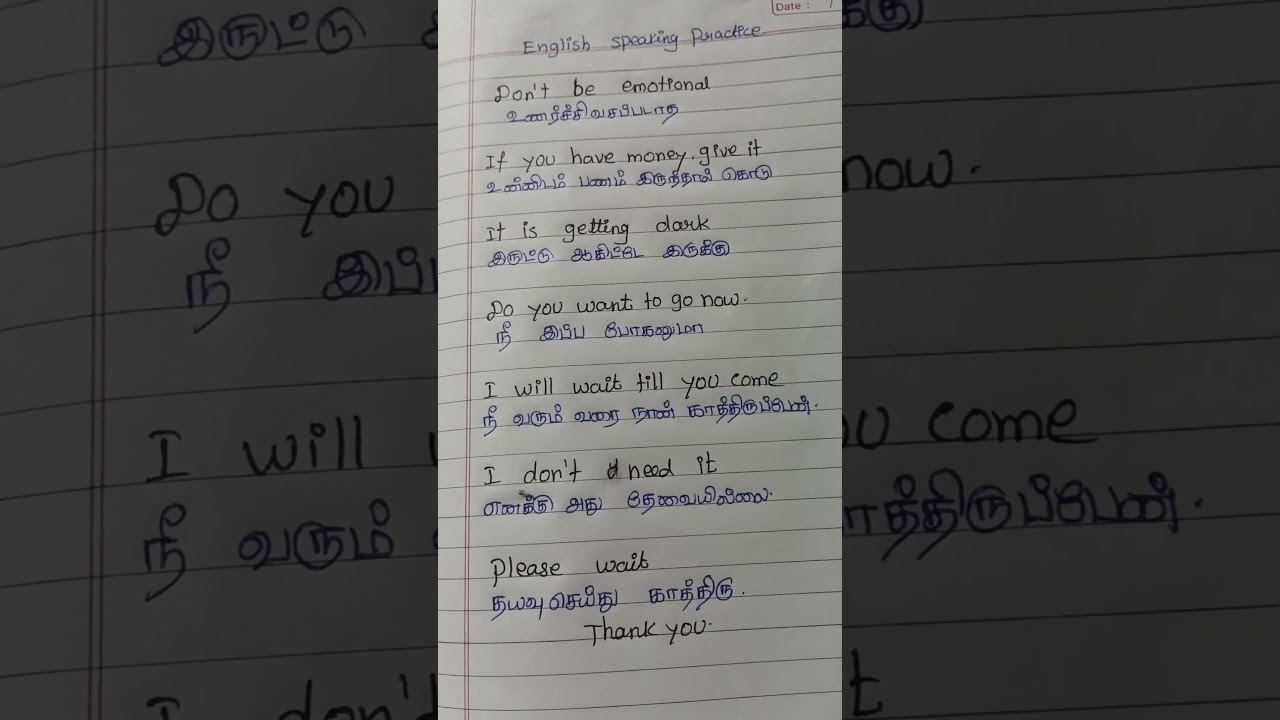 Date :
English speaking Practice
Don't be emotional
உணர்ச்சிவசப்படாத
If you have money, give it
உன்னிடம் பணம் இருந்தால் கொடு
It is getting dark
இருட்டு ஆகிட்டே இருக்கு
Do you want to go now.
நீ இப்ப போகணுமா
I will wait till you come
நீ வரும் வரை நான் காத்திருப்பேன்.
I don't need it
எனக்கு அது தேவையில்லை.
Please wait
தயவுசெய்து காத்திரு.
Thank you.